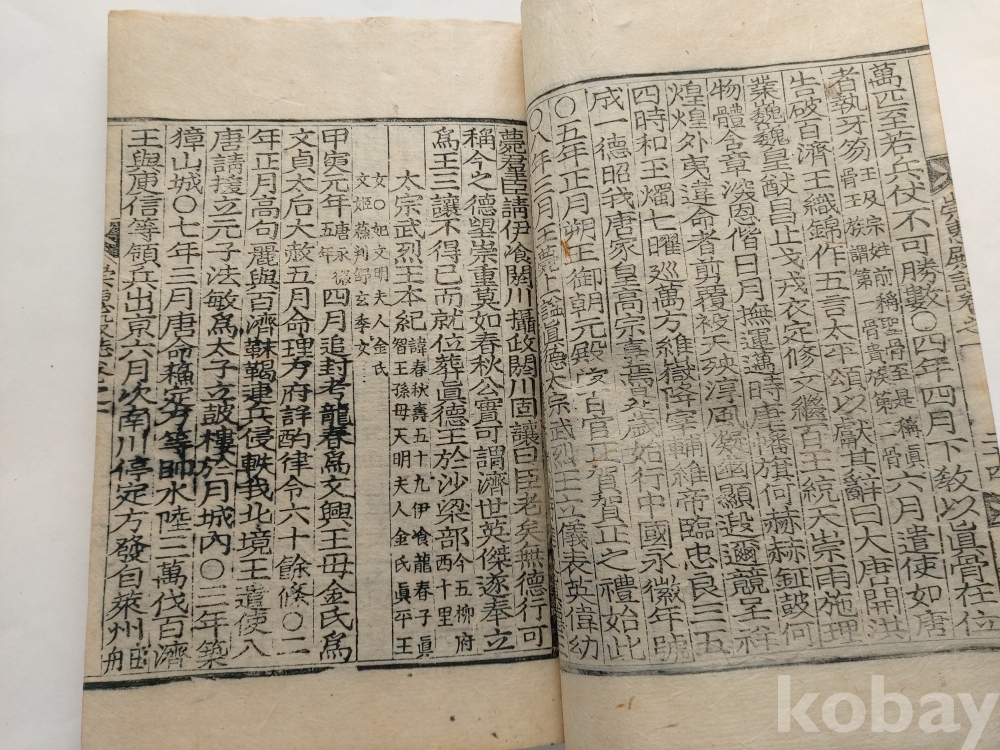 萬匹至若兵仗不可勝數○四年四月下敎以眞骨在位
者執牙笏王及宗姓前稱聖骨至是稱眞骨王族謂第一骨貴族第二骨六月遣使如唐
告破百濟王織錦作五言太平頌以獻其辭曰大唐開洪
業巍巍皇猷昌止戈戎衣定修文繼百王統天崇雨施理
物體含章深恩偕日月撫運邁時唐幡旗何赫赫鉦鼓何
煌煌外夷違命者剪覆被天殃淳風凝幽顯遐邇競呈祥
四時和玉燭七曜巡萬方維嶽降宰輔維帝臨忠良三五
成一德昭我唐家皇高宗嘉焉歲始行中國永徽年號
○五年正月朔王御朝元殿受百官正賀賀正之禮始此
○八年三月王薨上諡眞德太宗武烈王立儀表英偉幼
薨羣臣請伊飡閼川攝政閼川固讓曰臣老矣無德行可
稱今之德望崇重莫如春秋公實可謂濟世英傑遂奉立
爲王三讓不得已而就位葬眞德王於沙梁部今五柳府西十里
太宗武烈王本紀諱春秋壽五十九伊飡龍春子眞智王孫母天明夫人金氏眞平王
女○妃文明夫人金氏文姬蘇判舒玄季女
甲寅元年唐永徽五年四月追封考龍春爲文興王母金氏爲
文貞太后大赦五月命理方府詳酌律令六十餘條○二
年正月高句麗與百濟靺鞨連兵侵軼我北境王遣使入
唐請援立元子法敏爲太子立鼓樓於月城內○三年築
獐山城○七年三月唐命蘇定方等帥水陸三萬伐百濟
王與庾信等領兵出京六月次南川停定方發自萊州舳
kobay